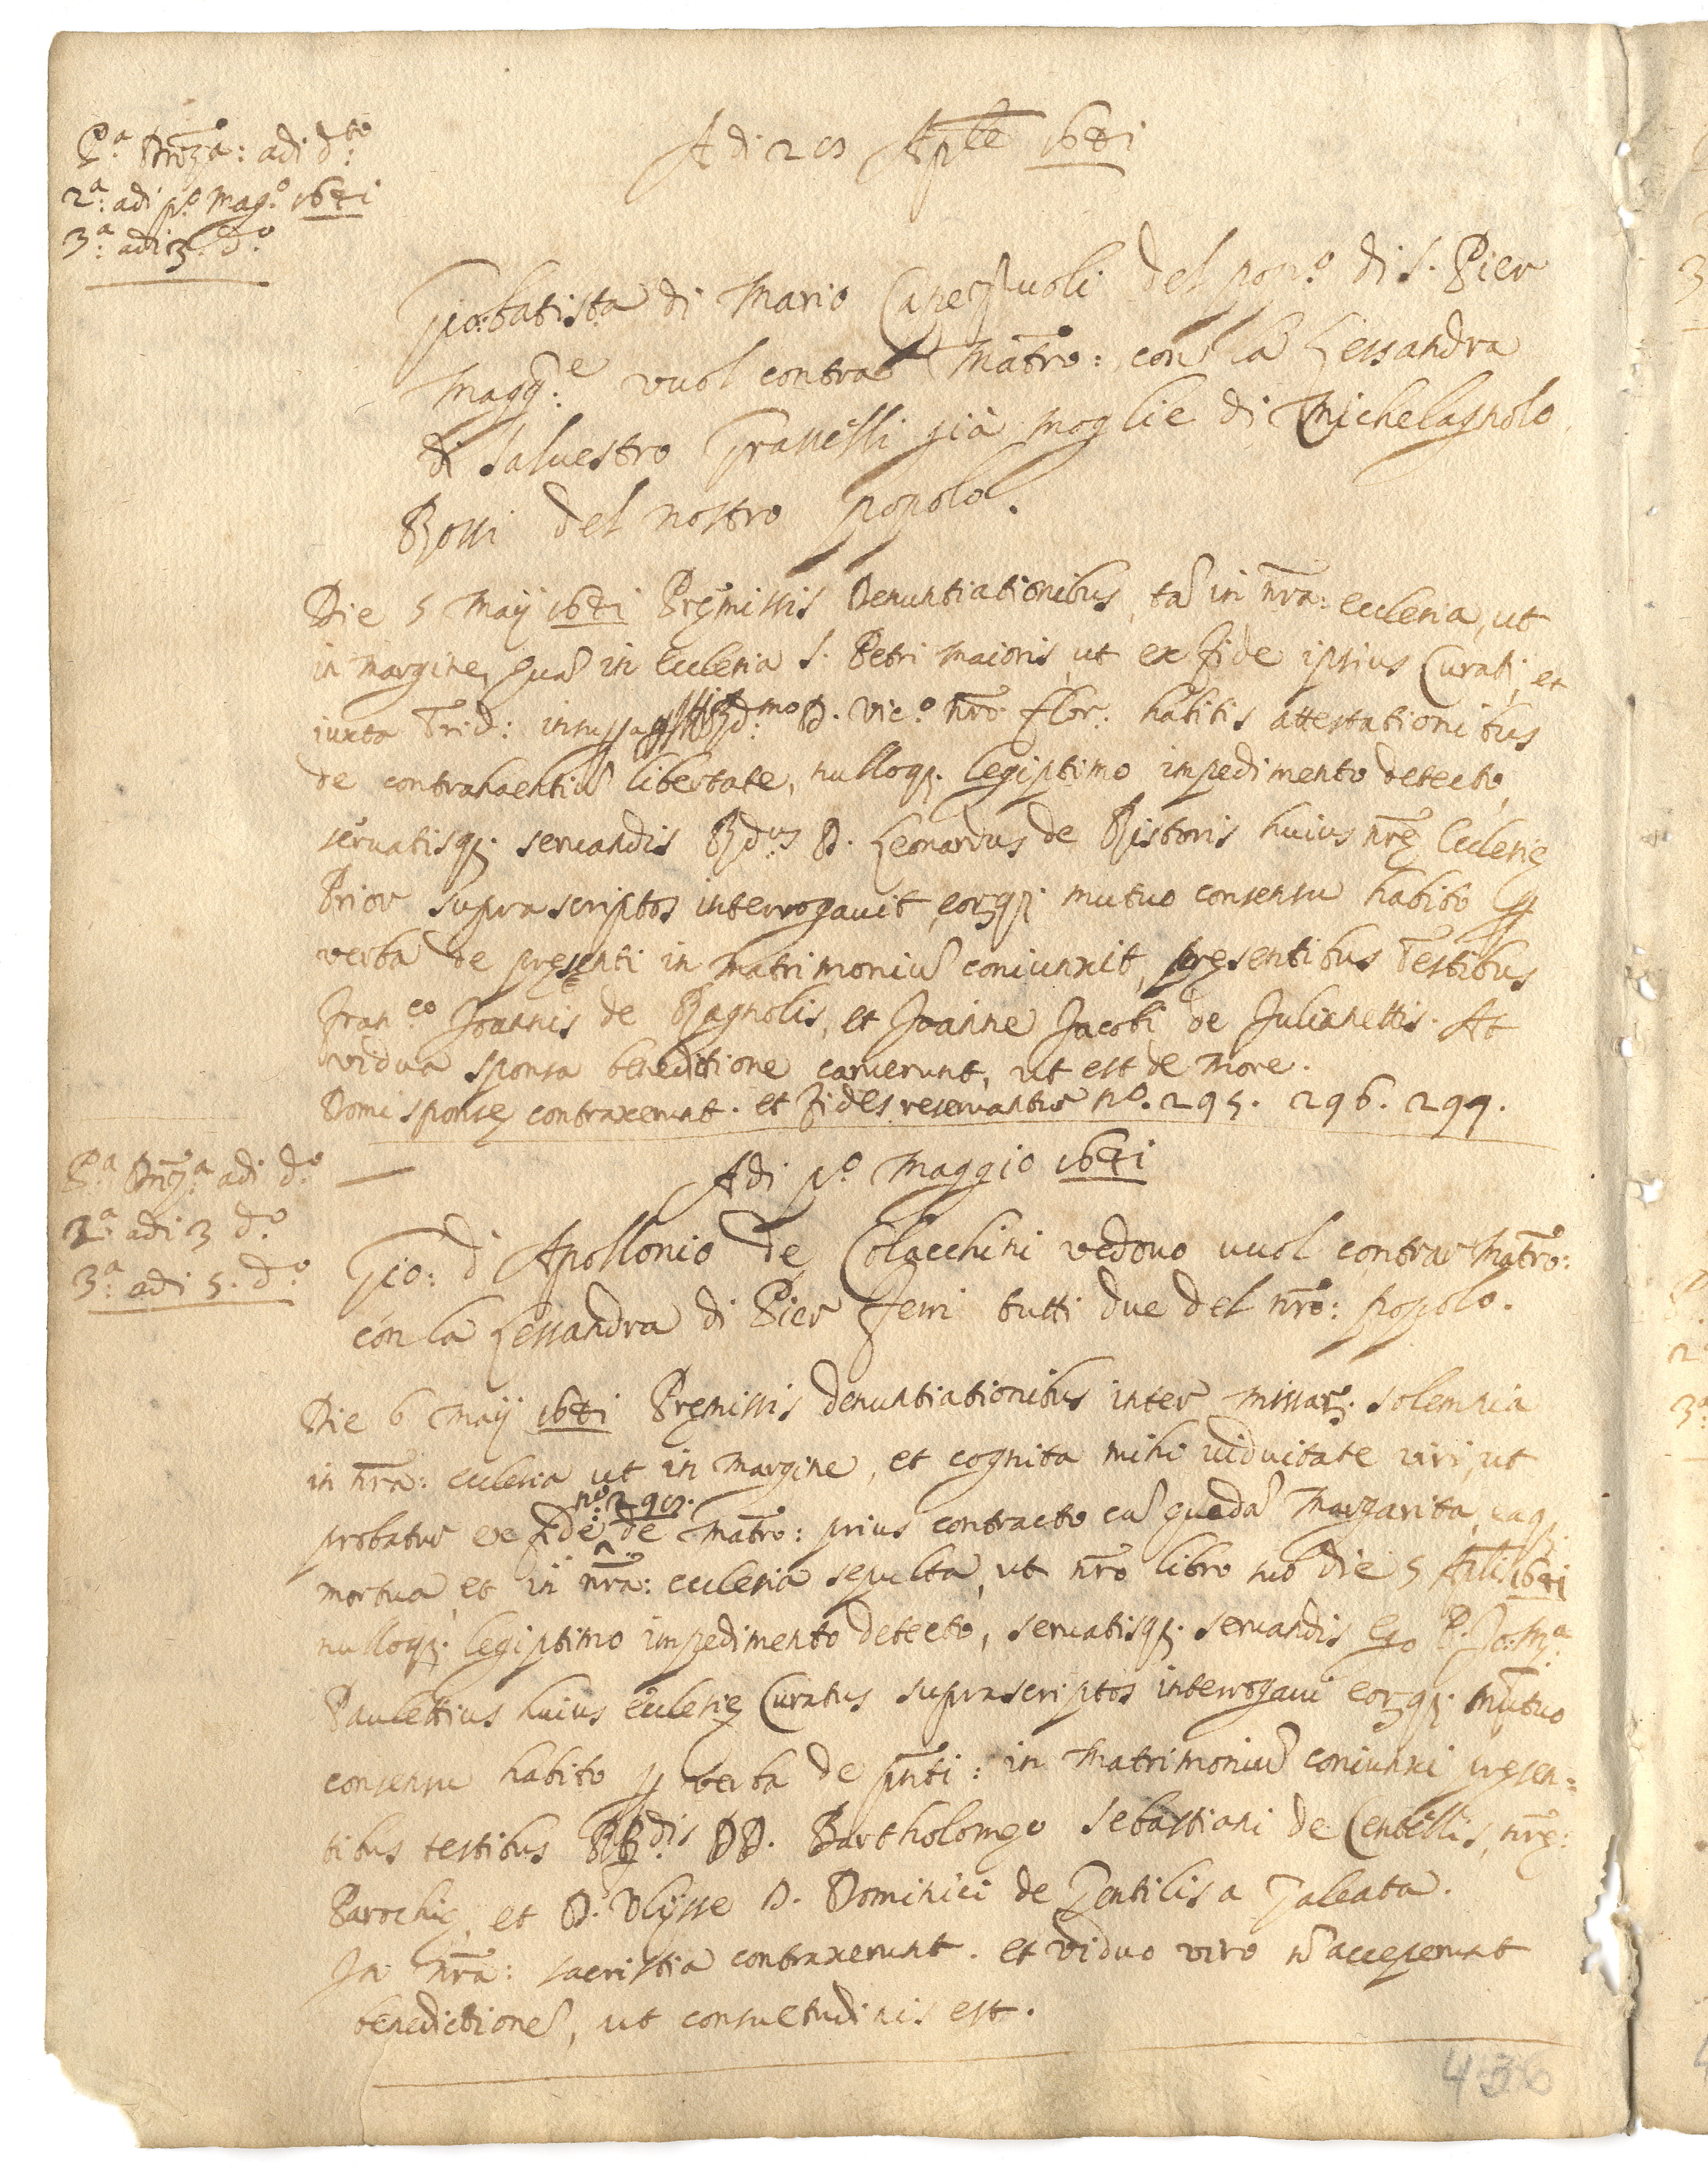 P.ª Dnza: adi d.to
2.ª adi p.º Mag.º 1641
3.ª adi 3 d.º
Adi 28 Aple 1641
Gio:batista di Mario Capezzuoli del pop.º di S. Pier
Magg.e vuol contrar Matro: con la Lessandra
di Saluestro Grazzelli già moglie di Michelagnolo
Rossi del nostro popolo.
Die 5 Maij 1641 Pręmissis Denuntiationibus, tã in nra: ecclesia, ut
in margine, quã in Ecclesia S. Petri Maioris, ut ex fide ipsius Curati, et
iuxta Trid: in Rd.mo D. Vic.º nro flor. habitis attestationibus
de contrahentiũ libertate, nulloq; legiptimo impedimento detecto,
seruatisq; seruandis Rdus D. Leonardus de Ristoris huius nrę Ecclesię
Prior suprascriptos interrogauit, eorq; mutuo consensu habito p
verba de pręsenti in Matrimoniũ coniunxit, pręsentibus Testibus
Fran.co Joannis de Bagnolis, et Joanne Jacobi de Julianettis. At
vidua sponsa beneditione caruerunt, ut est de more.
Domi sponsę contraxerunt. et fides reseruantur nº. 295. 296. 299.
P.ª Dnza adi d.º
2.ª adi 3 d.º
3.ª adi 5. d.º
Adi p.º Maggio 1641
Gio: d'Apollonio de Colacchini vedouo vuol contrar Matro:
con la Lessandra di Pier Ferri tutti due del nro: popolo.
Die 6 Maij 1641 Pręmissis denuntiationibus inter missar; solemnia
in nra: ecclesia ut in margine, et cognita mihi viduitate viri, ut
nº 298.
probatur ex fide de Matro: prius contracto cũ quedã Margarita, eaq;
mortua, et in nra: ecclesia sepulta, ut nro libro sub die 5 Aplis 1641
nulloq; legiptimo impedimento detecto, seruatisq; seruandis Ego P. Jo: M.ª
Paulettius huius ecclesię Curatus suprascriptos interrogaui eorq; mutuo
consensu habito p verba de pnti: in Matrimoniũ coniunxi pręsen=
tibus testibus RR.dis DD. Bartholomęo Sebastiani de Centellis, nrę:
Parochię, et D. Ulysse D. Dominici de Gentilis a Galeata.
In nra: sacristia contraxerunt. et viduo viro nõ acceperunt
benedictionẽ, ut consuetudinis est.
436